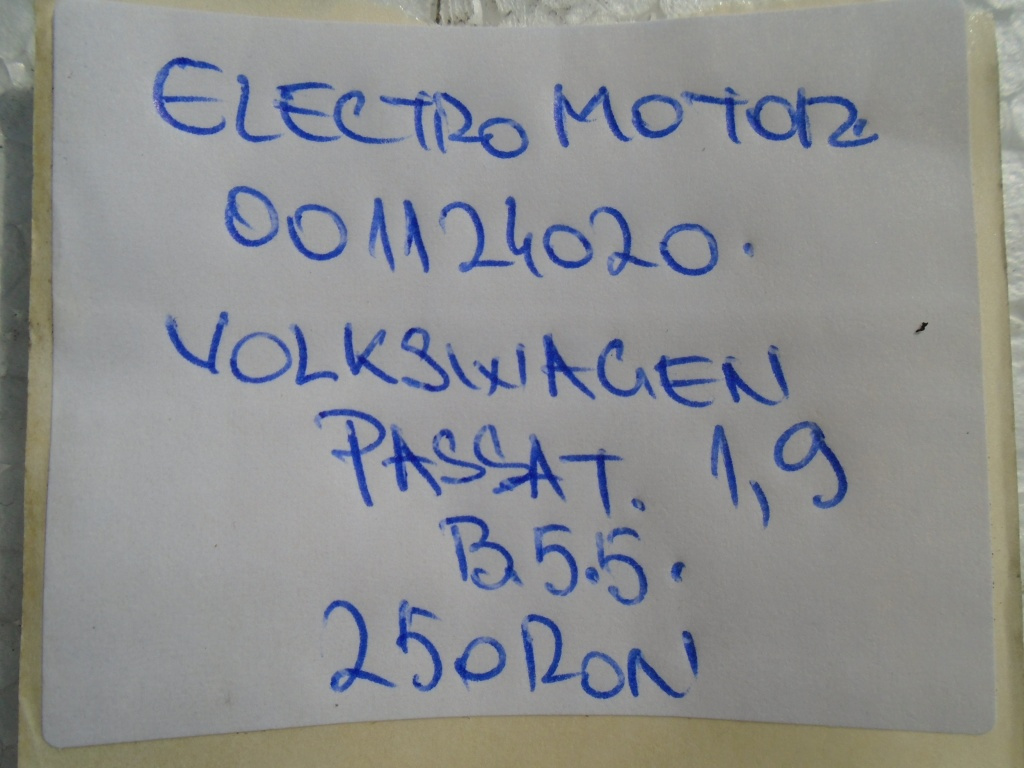 ELECTROMOTOR
001124020.
VOLKSWAGEN
PASSAT. 1,9
B.5.5.
250RON